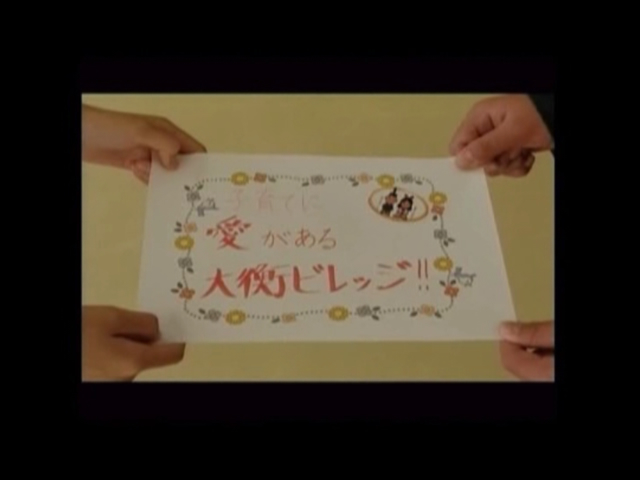 子育てに
愛がある
大衡ビレッジ!!